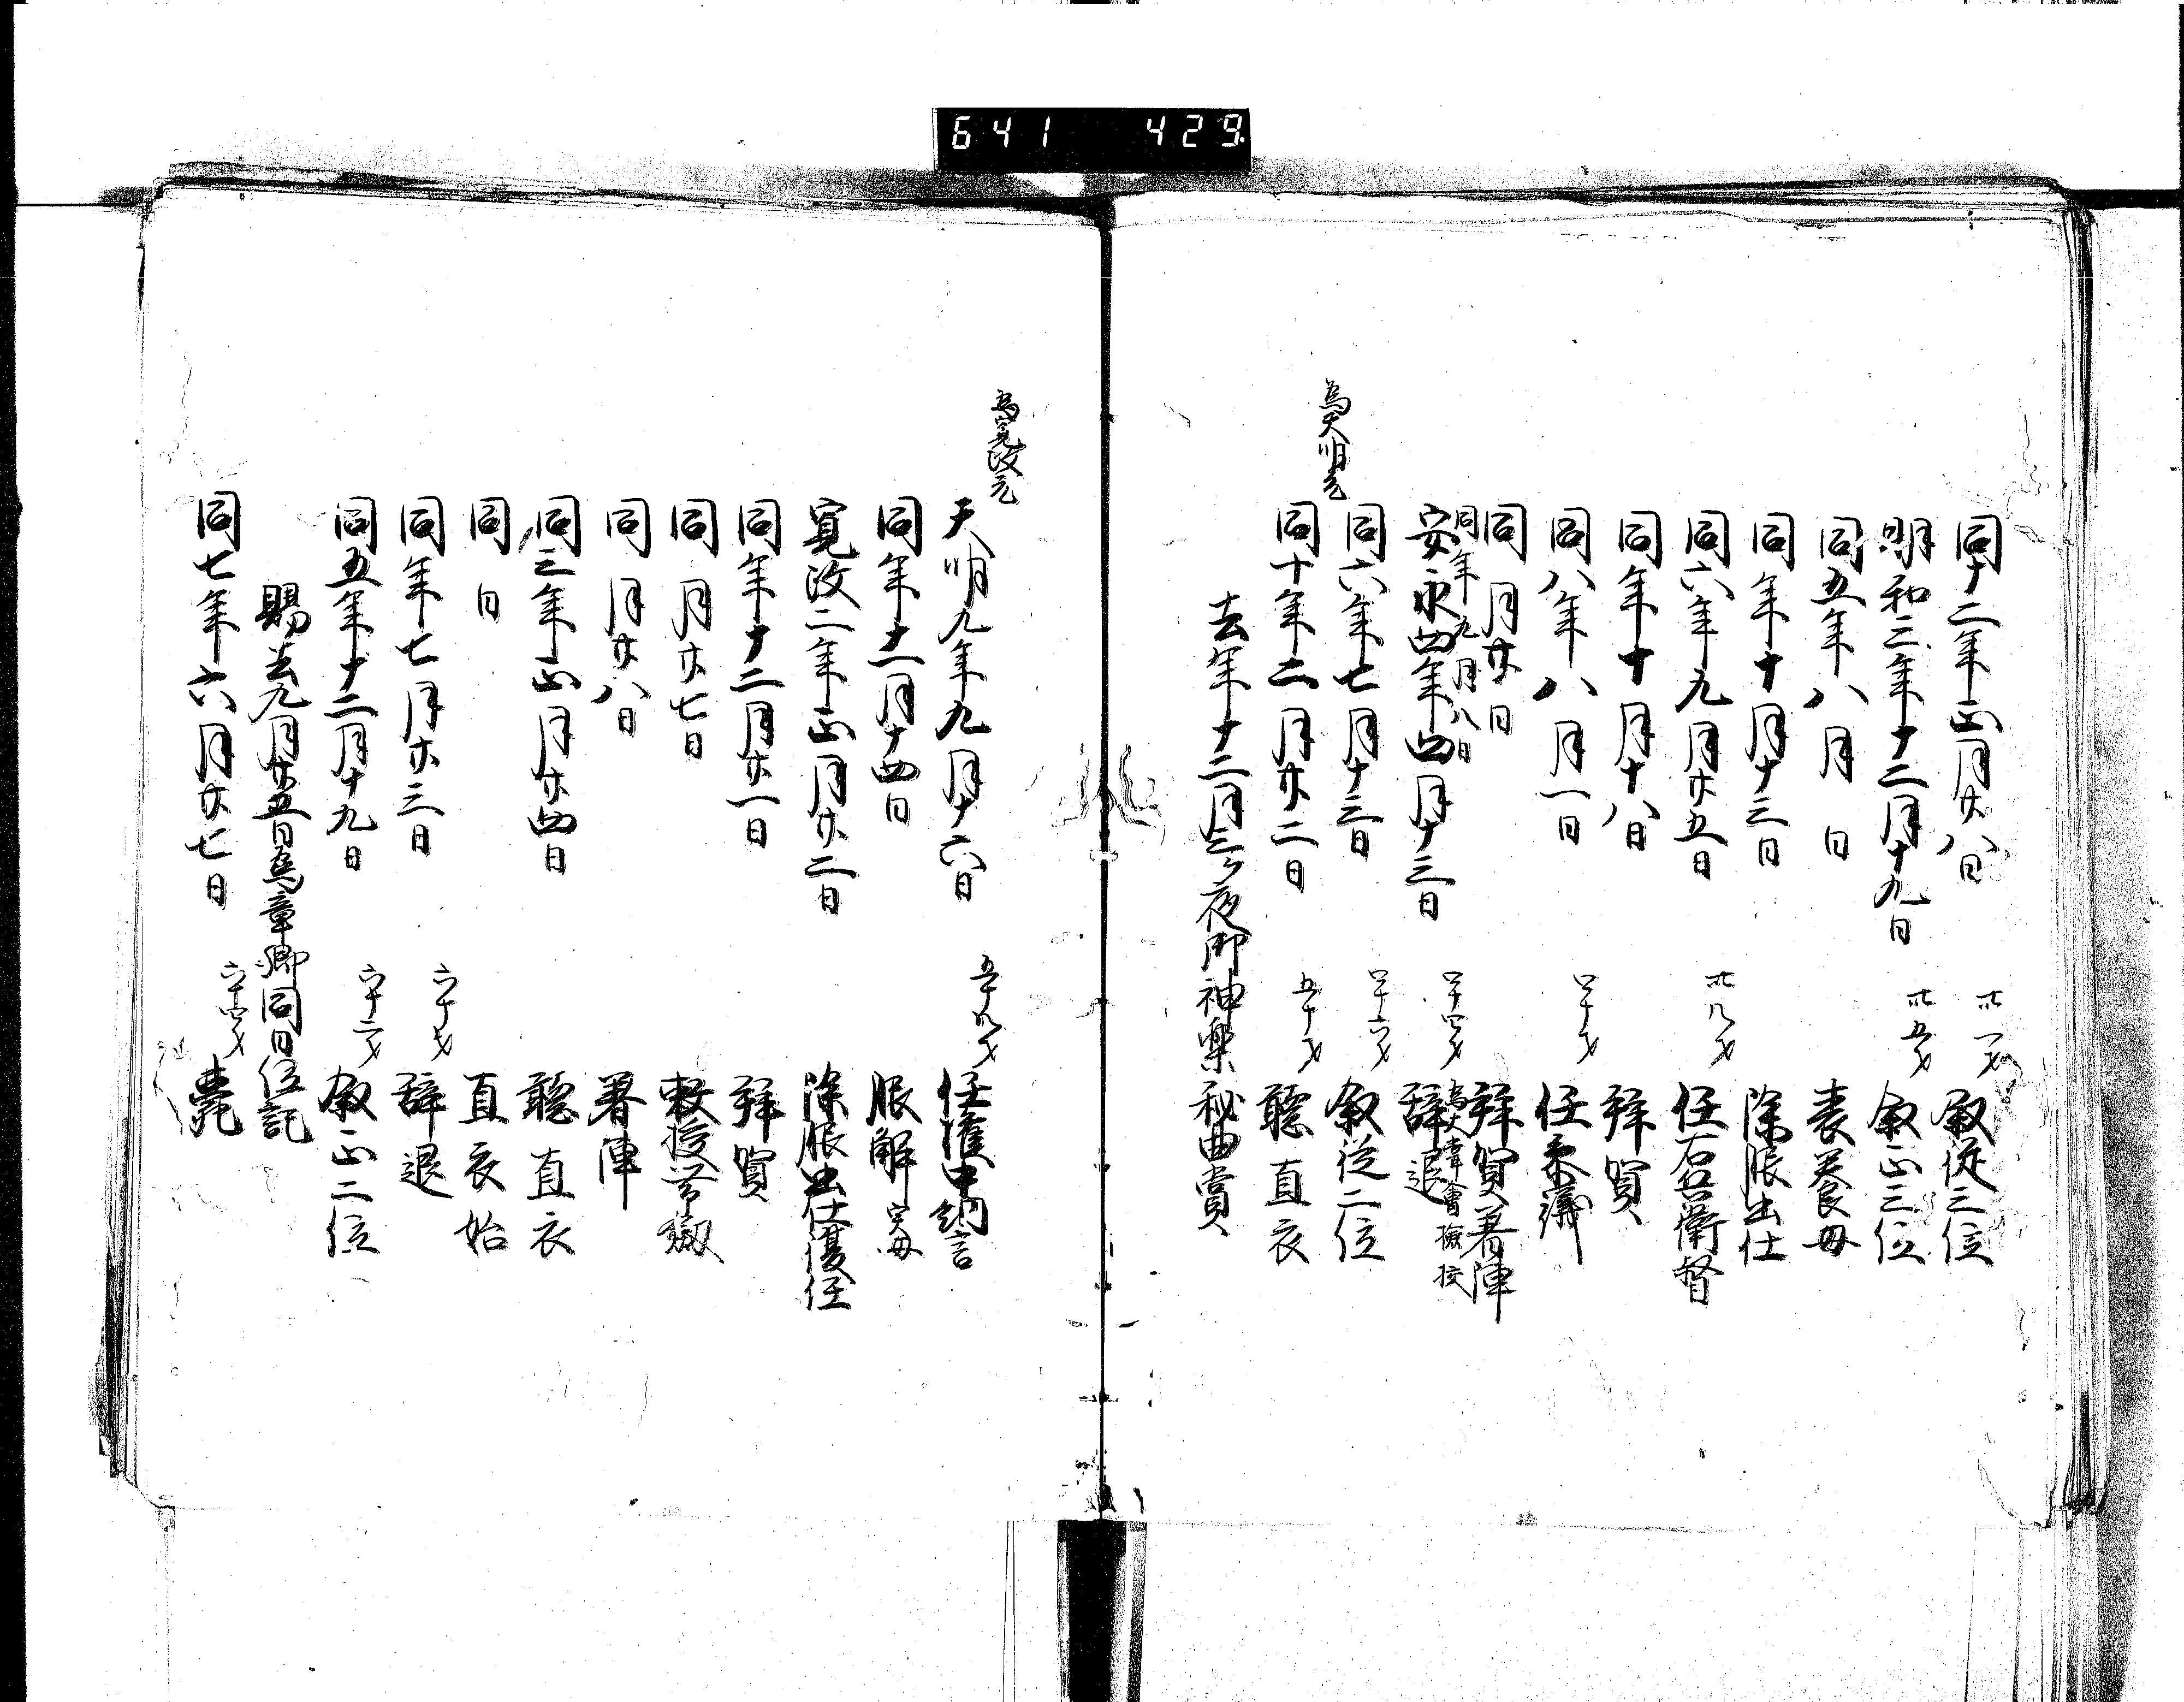 641 429
同十二年正月廿八日 卅一才 叙従三位
明和三年十二月十九日 卅五才 叙正三位
同五年八月 日 喪養母
同年十月十三日 除服出仕
同六年九月廿五日 卅八才 任右兵衛督
同年十月十八日 拜賀
同八年八月一日 四十才 任参議
同月廿日 拜賀著陣
同年九月八日 為大嘗會検校
安永四年四月十三日 四十四才 辞退
同六年七月十三日 四十六才 叙従二位
為天明元
同十年二月廿二日 五十才 聴直衣
去年十二月三ケ夜御神楽秘曲賞
為寛政元
天明九年九月十六日 五十九才 任権中納言
同年十一月十四日 服解 実母
寛政二年正月廿二日 除服出仕復任
同年十二月廿一日 拜賀
同月廿七日 敕授帯劔
同月廿八日 著陣
同三年正月廿四日 聴直衣
同日 直衣始
同年七月廿三日 六十才 辞退
同五年十二月十九日 六十二才 叙正二位
賜去九月廿五日為章卿同日位記
同七年六月廿七日 六十四才 薨